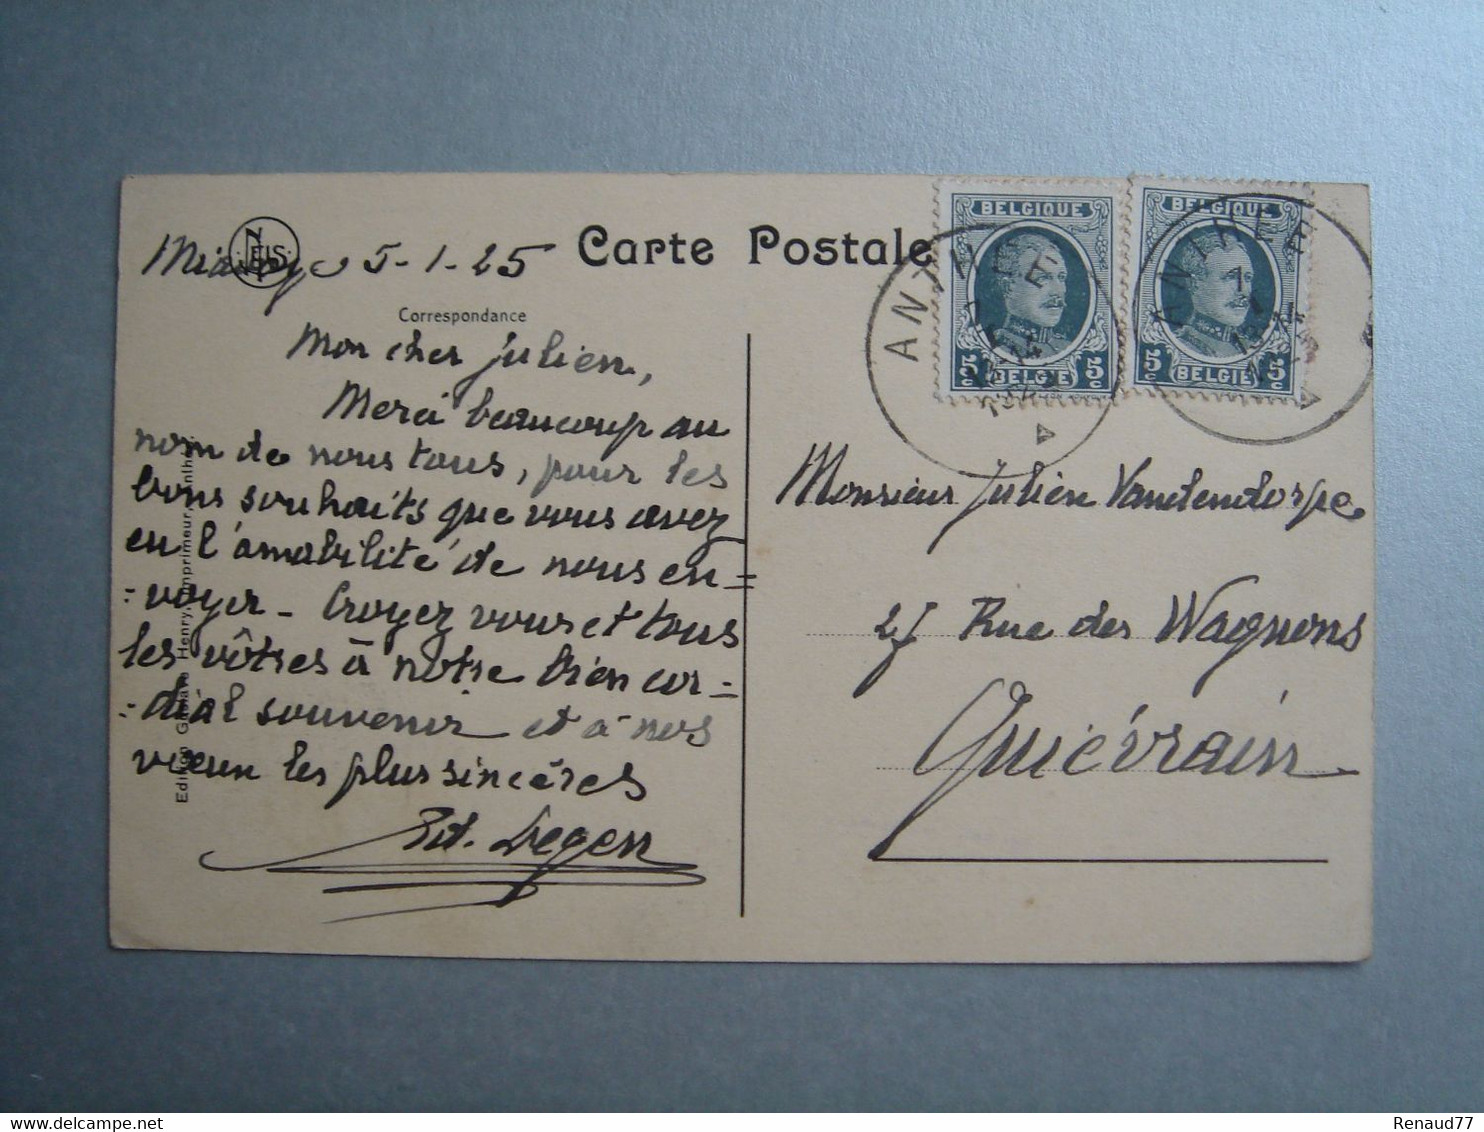 NELS
Carte Postale
5-1-25
Correspondance
Mon cher Julien,
Merci beaucoup au
nom de nous tous, pour les
bons souhaits que vous avez
eu l'amabilité de nous en=
=voyer - Croyez vous et tous
les vôtres à notre bien cor=
=dial souvenir et à nos
vœux les plus sincères
Degen
Henry, Imprimeur
BELGIQUE
5c 5c
BELGIË
BELGIQUE
5c 5c
BELGIË
ANTHÉE
ANTHÉE
Monsieur Julien Vandendorpe
Rue des Wagnons
Quiévrain
Renaud77